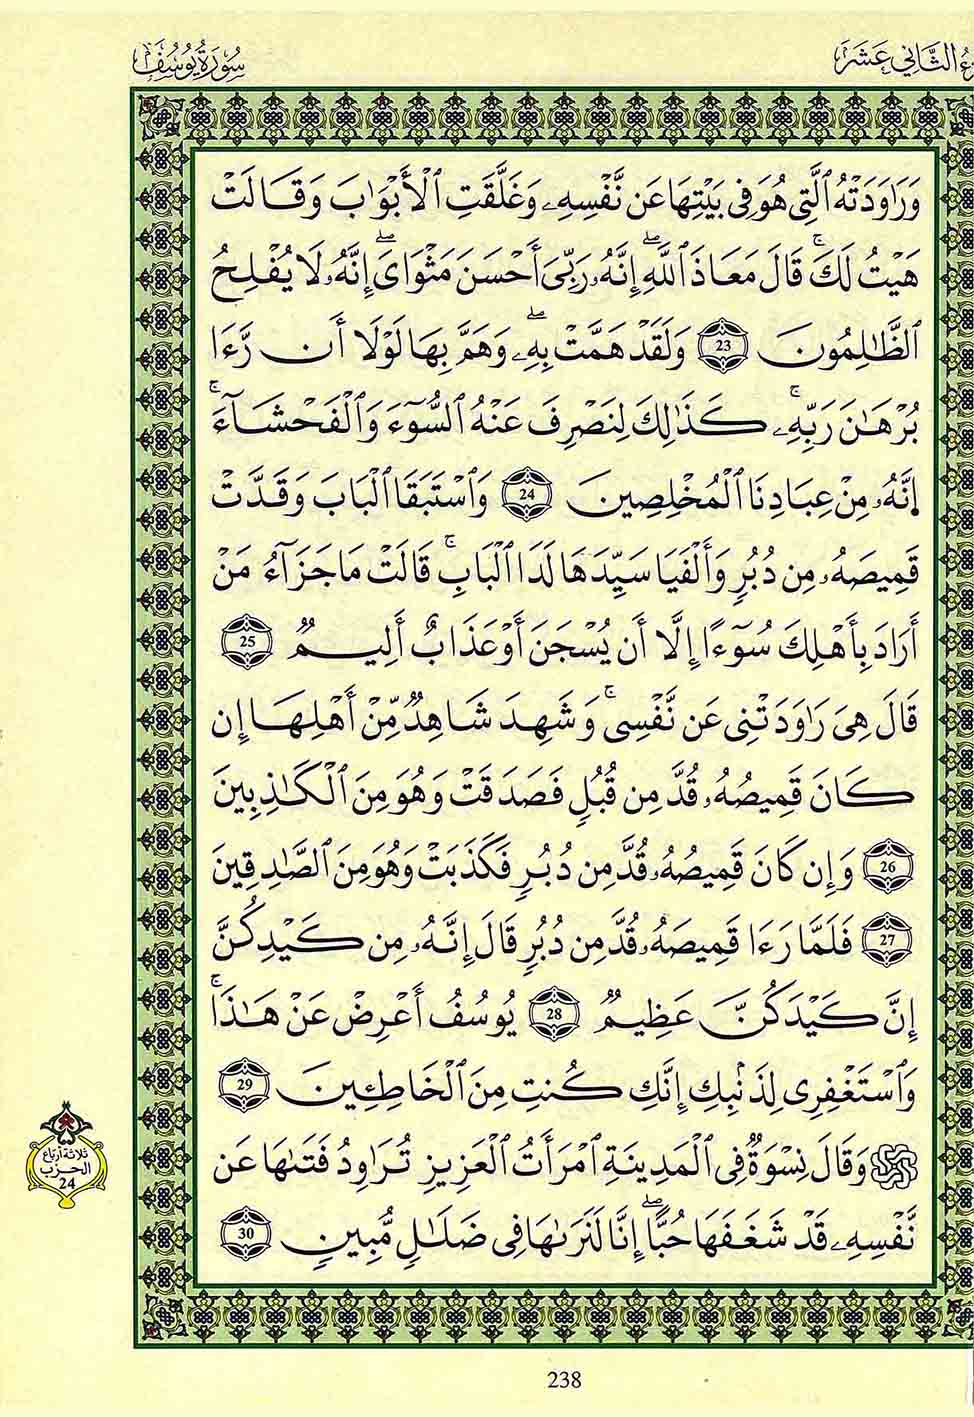 ـزءُ الثَّانِي عَشَرَ
سُورَةُ يُوسُفَ
وَرَٰوَدَتْهُ ٱلَّتِى هُوَ فِى بَيْتِهَا عَن نَّفْسِهِۦ وَغَلَّقَتِ ٱلْأَبْوَٰبَ وَقَالَتْ
هَيْتُ لَكَ ۚ قَالَ مَعَاذَ ٱللَّهِ ۖ إِنَّهُۥ رَبِّىَ أَحْسَنَ مَثْوَاىَ ۖ إِنَّهُۥ لَا يُفْلِحُ
ٱلظَّٰلِمُونَ 23 وَلَقَدْ هَمَّتْ بِهِۦ ۖ وَهَمَّ بِهَا لَوْلَا أَن رَّءَا
بُرْهَٰنَ رَبِّهِۦ ۚ كَذَٰلِكَ لِنَصْرِفَ عَنْهُ ٱلسُّوٓءَ وَٱلْفَحْشَآءَ ۚ
إِنَّهُۥ مِنْ عِبَادِنَا ٱلْمُخْلِصِينَ 24 وَٱسْتَبَقَا ٱلْبَابَ وَقَدَّتْ
قَمِيصَهُۥ مِن دُبُرٍ وَأَلْفَيَا سَيِّدَهَا لَدَا ٱلْبَابِ ۚ قَالَتْ مَا جَزَآءُ مَنْ
أَرَادَ بِأَهْلِكَ سُوٓءًا إِلَّا أَن يُسْجَنَ أَوْ عَذَابٌ أَلِيمٌ 25
قَالَ هِىَ رَٰوَدَتْنِى عَن نَّفْسِى ۚ وَشَهِدَ شَاهِدٌ مِّنْ أَهْلِهَا إِن
كَانَ قَمِيصُهُۥ قُدَّ مِن قُبُلٍ فَصَدَقَتْ وَهُوَ مِنَ ٱلْكَٰذِبِينَ
26 وَإِن كَانَ قَمِيصُهُۥ قُدَّ مِن دُبُرٍ فَكَذَبَتْ وَهُوَ مِنَ ٱلصَّٰدِقِينَ
27 فَلَمَّا رَءَا قَمِيصَهُۥ قُدَّ مِن دُبُرٍ قَالَ إِنَّهُۥ مِن كَيْدِكُنَّ
إِنَّ كَيْدَكُنَّ عَظِيمٌ 28 يُوسُفُ أَعْرِضْ عَنْ هَٰذَا ۚ
وَٱسْتَغْفِرِى لِذَنۢبِكِ إِنَّكِ كُنتِ مِنَ ٱلْخَاطِـِٔينَ 29
۞ وَقَالَ نِسْوَةٌ فِى ٱلْمَدِينَةِ ٱمْرَأَتُ ٱلْعَزِيزِ تُرَٰوِدُ فَتَىٰهَا عَن
نَّفْسِهِۦ قَدْ شَغَفَهَا حُبًّا ۖ إِنَّا لَنَرَىٰهَا فِى ضَلَٰلٍ مُّبِينٍ 30
ثلاثة أرباع
الحزب
24
238